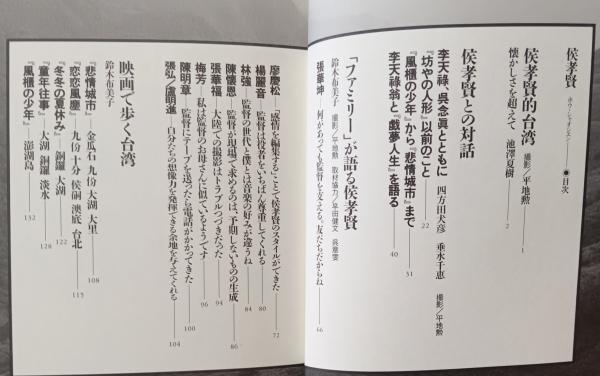 侯孝賢 ホウ・シャオシェン ●目次
侯孝賢的台湾 撮影/平地勲 1
懐かしさを超えて 池澤夏樹 2
侯孝賢との対話
李天祿、呉念眞とともに 四方田犬彦 垂水千恵 撮影/平地勲
『坊やの人形』以前のこと 22
『風櫃の少年』から『悲情城市』まで 31
李天祿翁と『戯夢人生』を語る 40
「ファミリー」が語る侯孝賢
鈴木布美子 撮影/平地勲 取材協力/早田健文 呉意雯
張華坤 何があっても監督を支える。友だちだからね 66
廖慶松 「感情を編集する」ことで侯孝賢のスタイルができた 72
楊麗音 監督は役者をいちばん尊重してくれる 80
林強 監督の世代と僕とは音楽の好みが違うね 84
陳懐恩 監督が現場で求めるのは、予期しないものの生成 86
張華福 大陸での撮影はトラブルつづきだった 94
梅芳 私は監督のお母さんに似ているようです 96
陳明章 監督にテープを送ったら電話がかかってきた 100
張弘/盧明進 自分たちの想像力を発揮できる余地を与えてくれる 104
映画で歩く台湾
鈴木布美子
『悲情城市』 金瓜石 九份 大湖 大里 108
『恋恋風塵』 九份 十分 侯硐 澳底 台北 115
『冬冬の夏休み』 銅鑼 大湖 122
『童年往事』 大湖 銅鑼 淡水 128
『風櫃の少年』 澎湖島 132